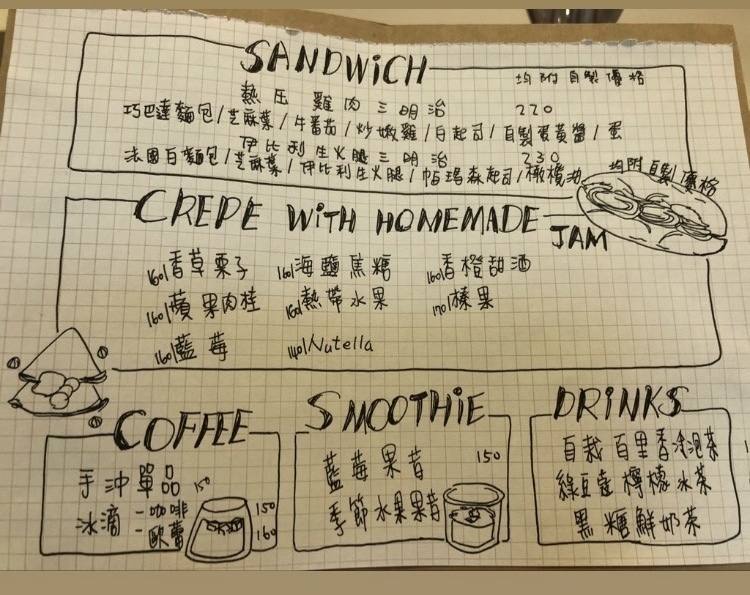 SANDWiCH
均附自製優格
熱压雞肉三明治 220
巧巴達麵包/芝麻葉/牛番茄/炒嫩雞/白起司/自製蛋黃醬/蛋
伊比利生火腿三明治 230
法國白麵包/芝麻葉/伊比利生火腿/帕瑪森起司/橄欖油 均附自製優格
CREPE WiTH HOMEMADE JAM
160/香草栗子 160/海鹽焦糖 160/香橙甜酒
160/蘋果肉桂 160/熱帶水果 170/榛果
160/藍莓 140/Nutella
COFFEE
手沖單品 150
冰滴 -咖啡 150
-歐蕾 160
SMOOTHiE
藍莓果昔 150
季節水果果昔
DRiNKS
自栽百里香冷泡茶
綠豆蔻檸檬冰茶
黑糖鮮奶茶